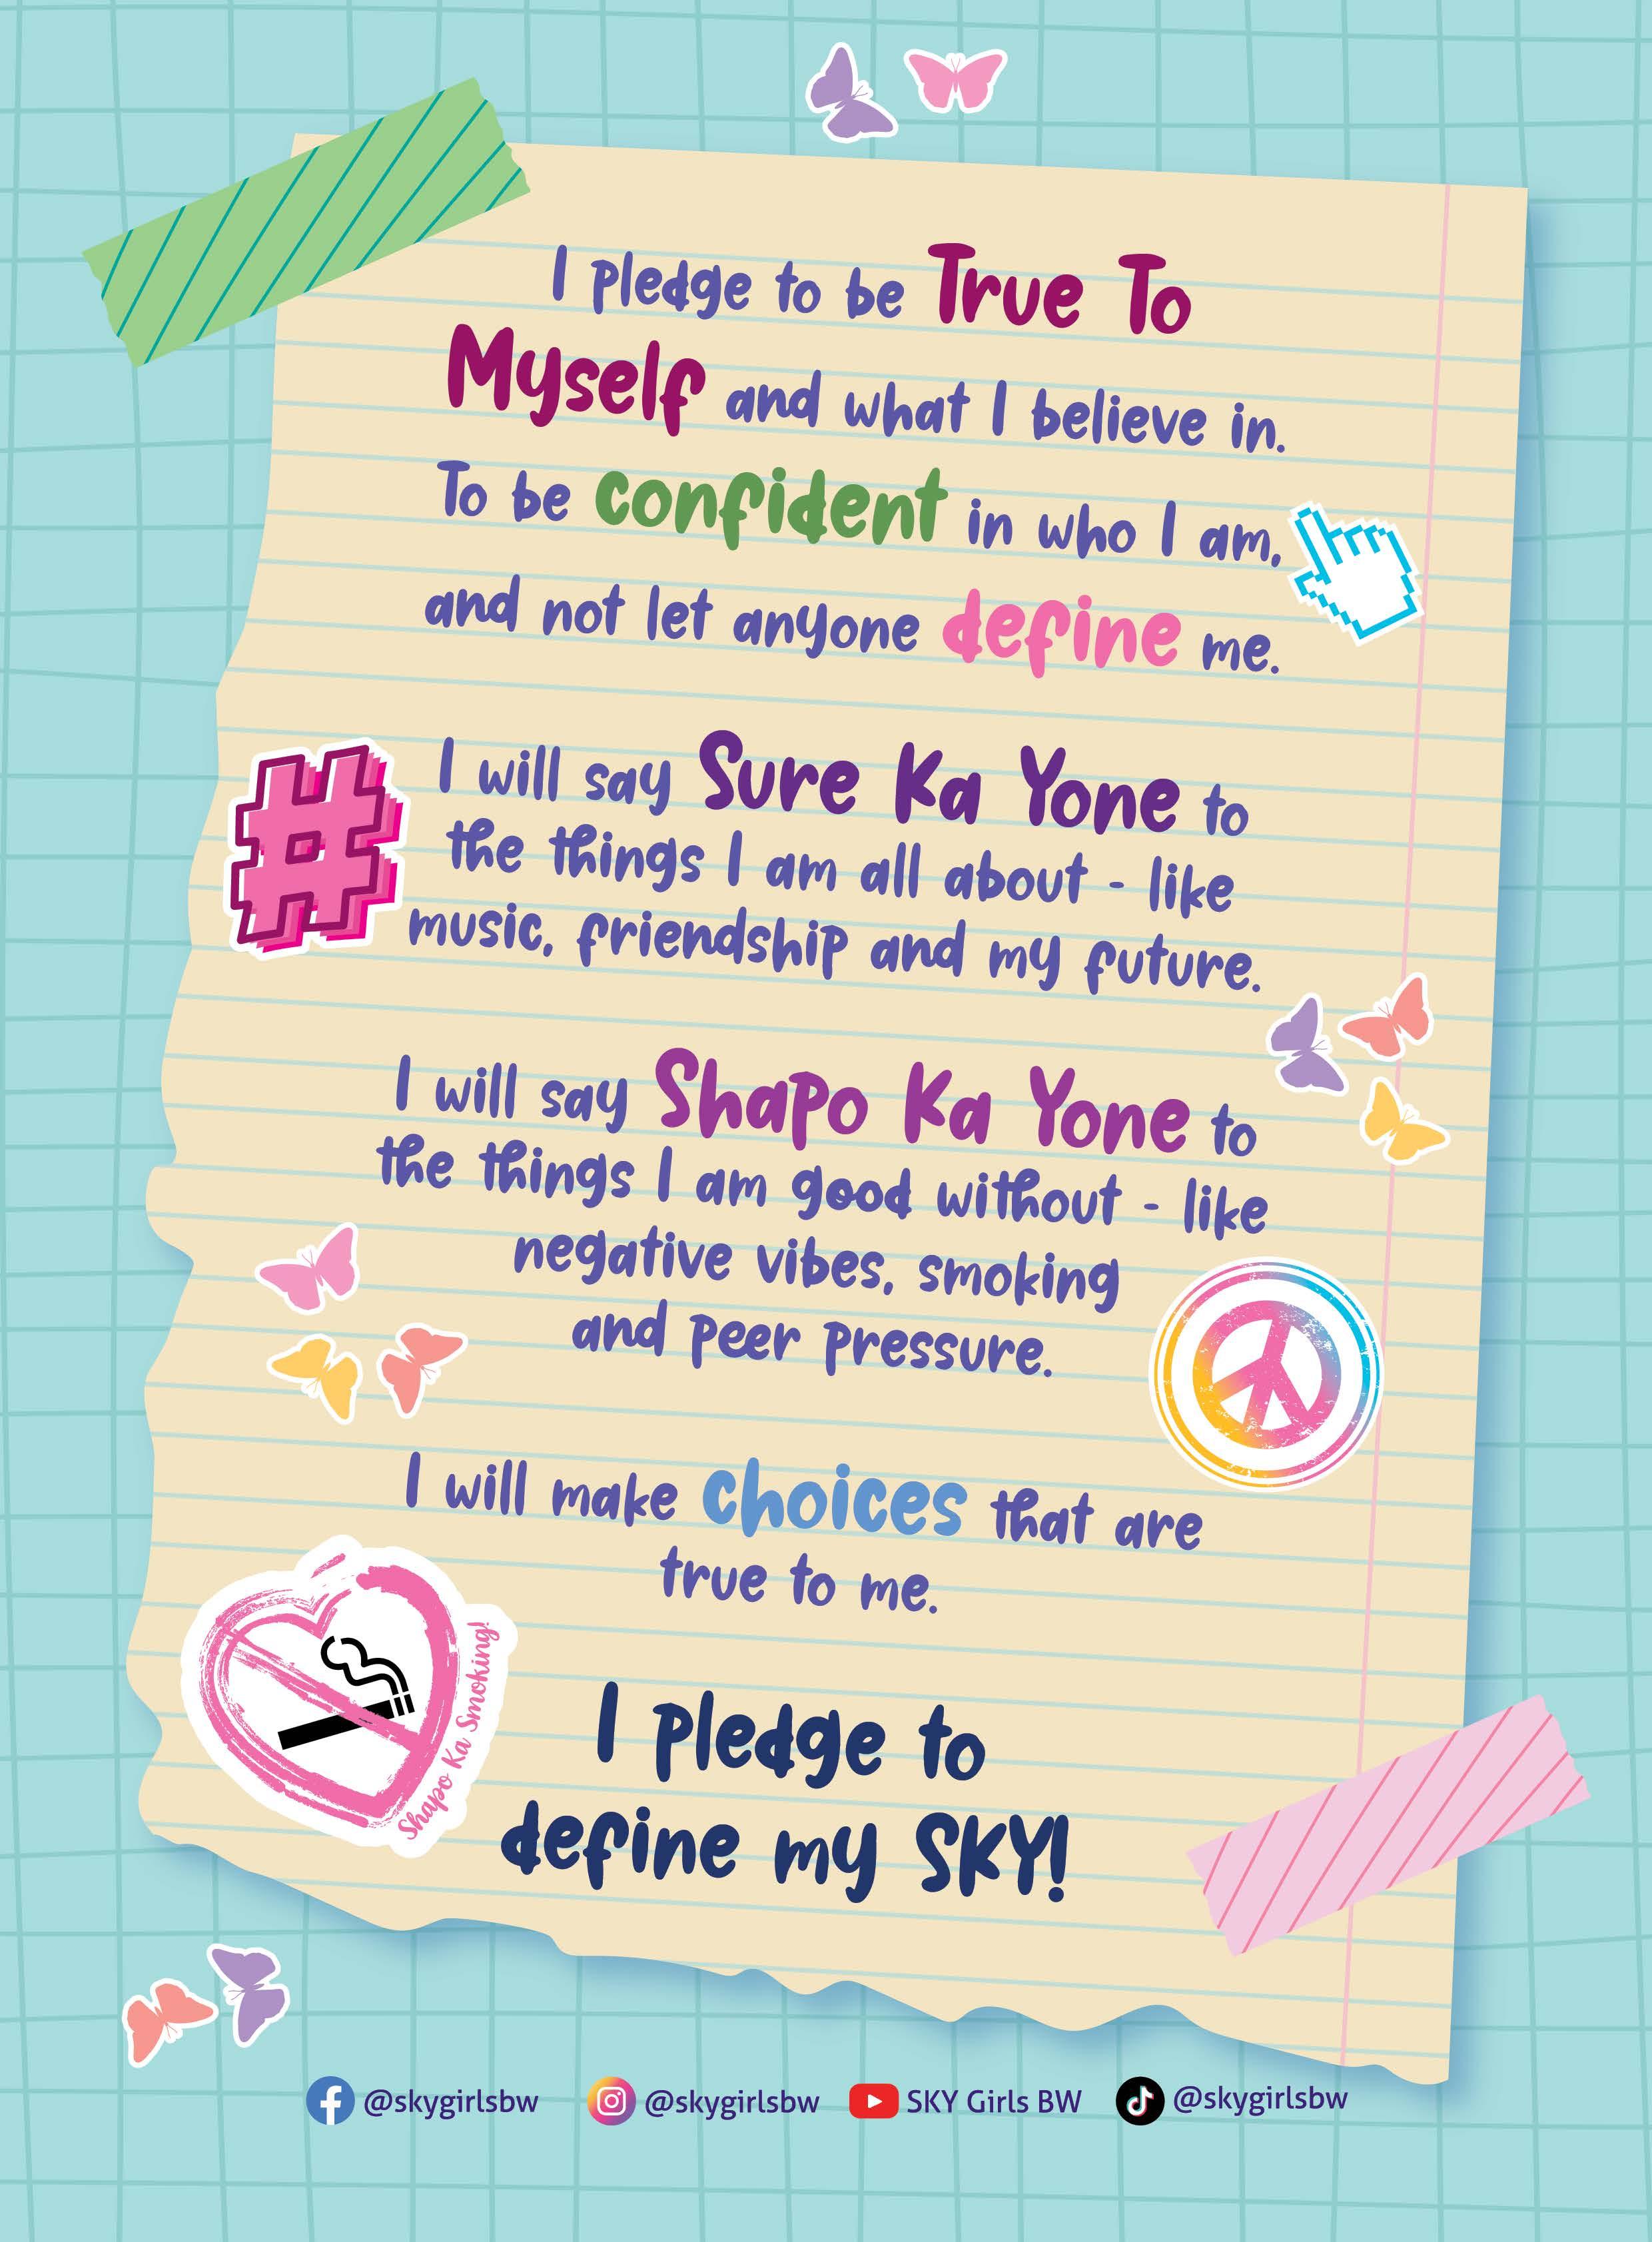 I pledge to be True To
Myself and what I believe in.
To be confident in who I am,
and not let anyone define me.
I will say Sure Ka Yone to
the things I am all about - like
music, friendship and my future.
I will say Shapo Ka Yone to
the things I am good without - like
negative vibes, smoking
and peer pressure.
I will make choices that are
true to me.
Shapo Ka Smoking!
I pledge to
define my SKY!
@skygirlsbw @skygirlsbw SKY Girls BW @skygirlsbw